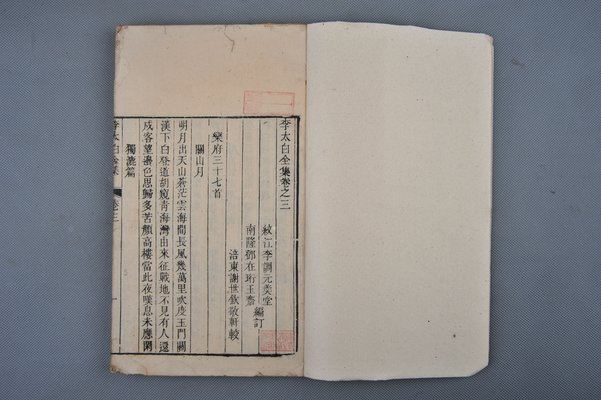 李太白全集卷之三
綿江李調元美堂
南隆鄧在珩玉齋 編訂
涪東謝世欽敬軒較
樂府三十七首
關山月
明月出天山蒼茫雲海間長風幾萬里吹度玉門關
漢下白登道胡窺青海灣由來征戰地不見有人還
戍客望邊色思歸多苦顏高樓當此夜嘆息未應閑
獨漉篇
李太白全集 卷三 一